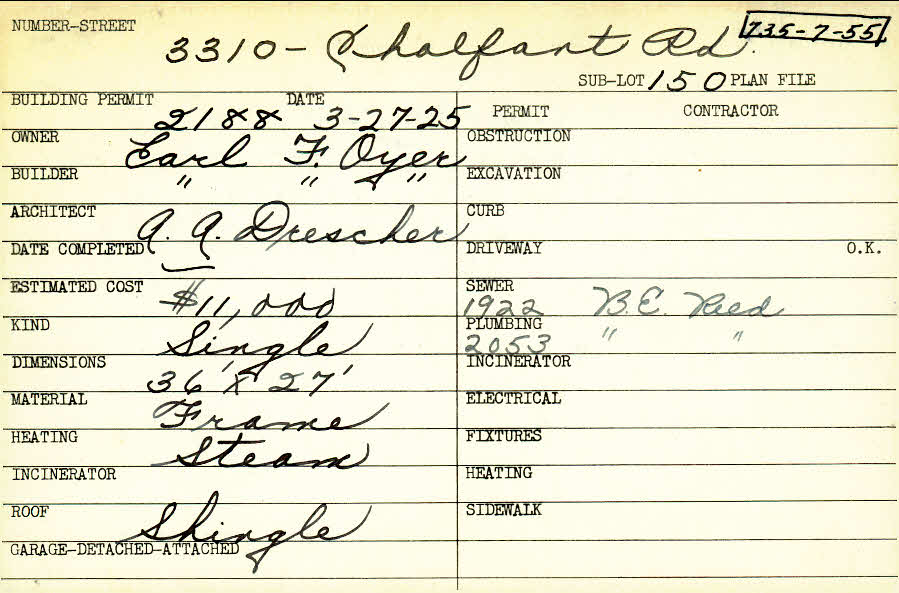 NUMBER-STREET 3310- Chalfant Rd. 735-7-55
SUB-LOT 150 PLAN FILE
BUILDING PERMIT 2188 DATE 3-27-25
PERMIT CONTRACTOR
OWNER Earl F. Oyer
OBSTRUCTION
BUILDER " " "
EXCAVATION
ARCHITECT A. A. Drescher
CURB
DATE COMPLETED
DRIVEWAY O.K.
ESTIMATED COST $11,000
SEWER 1922 B.E. Reed
KIND Single
PLUMBING 2053 " "
DIMENSIONS 36' x 27'
INCINERATOR
MATERIAL Frame
ELECTRICAL
HEATING Steam
FIXTURES
INCINERATOR
HEATING
ROOF Shingle
SIDEWALK
GARAGE-DETACHED-ATTACHED